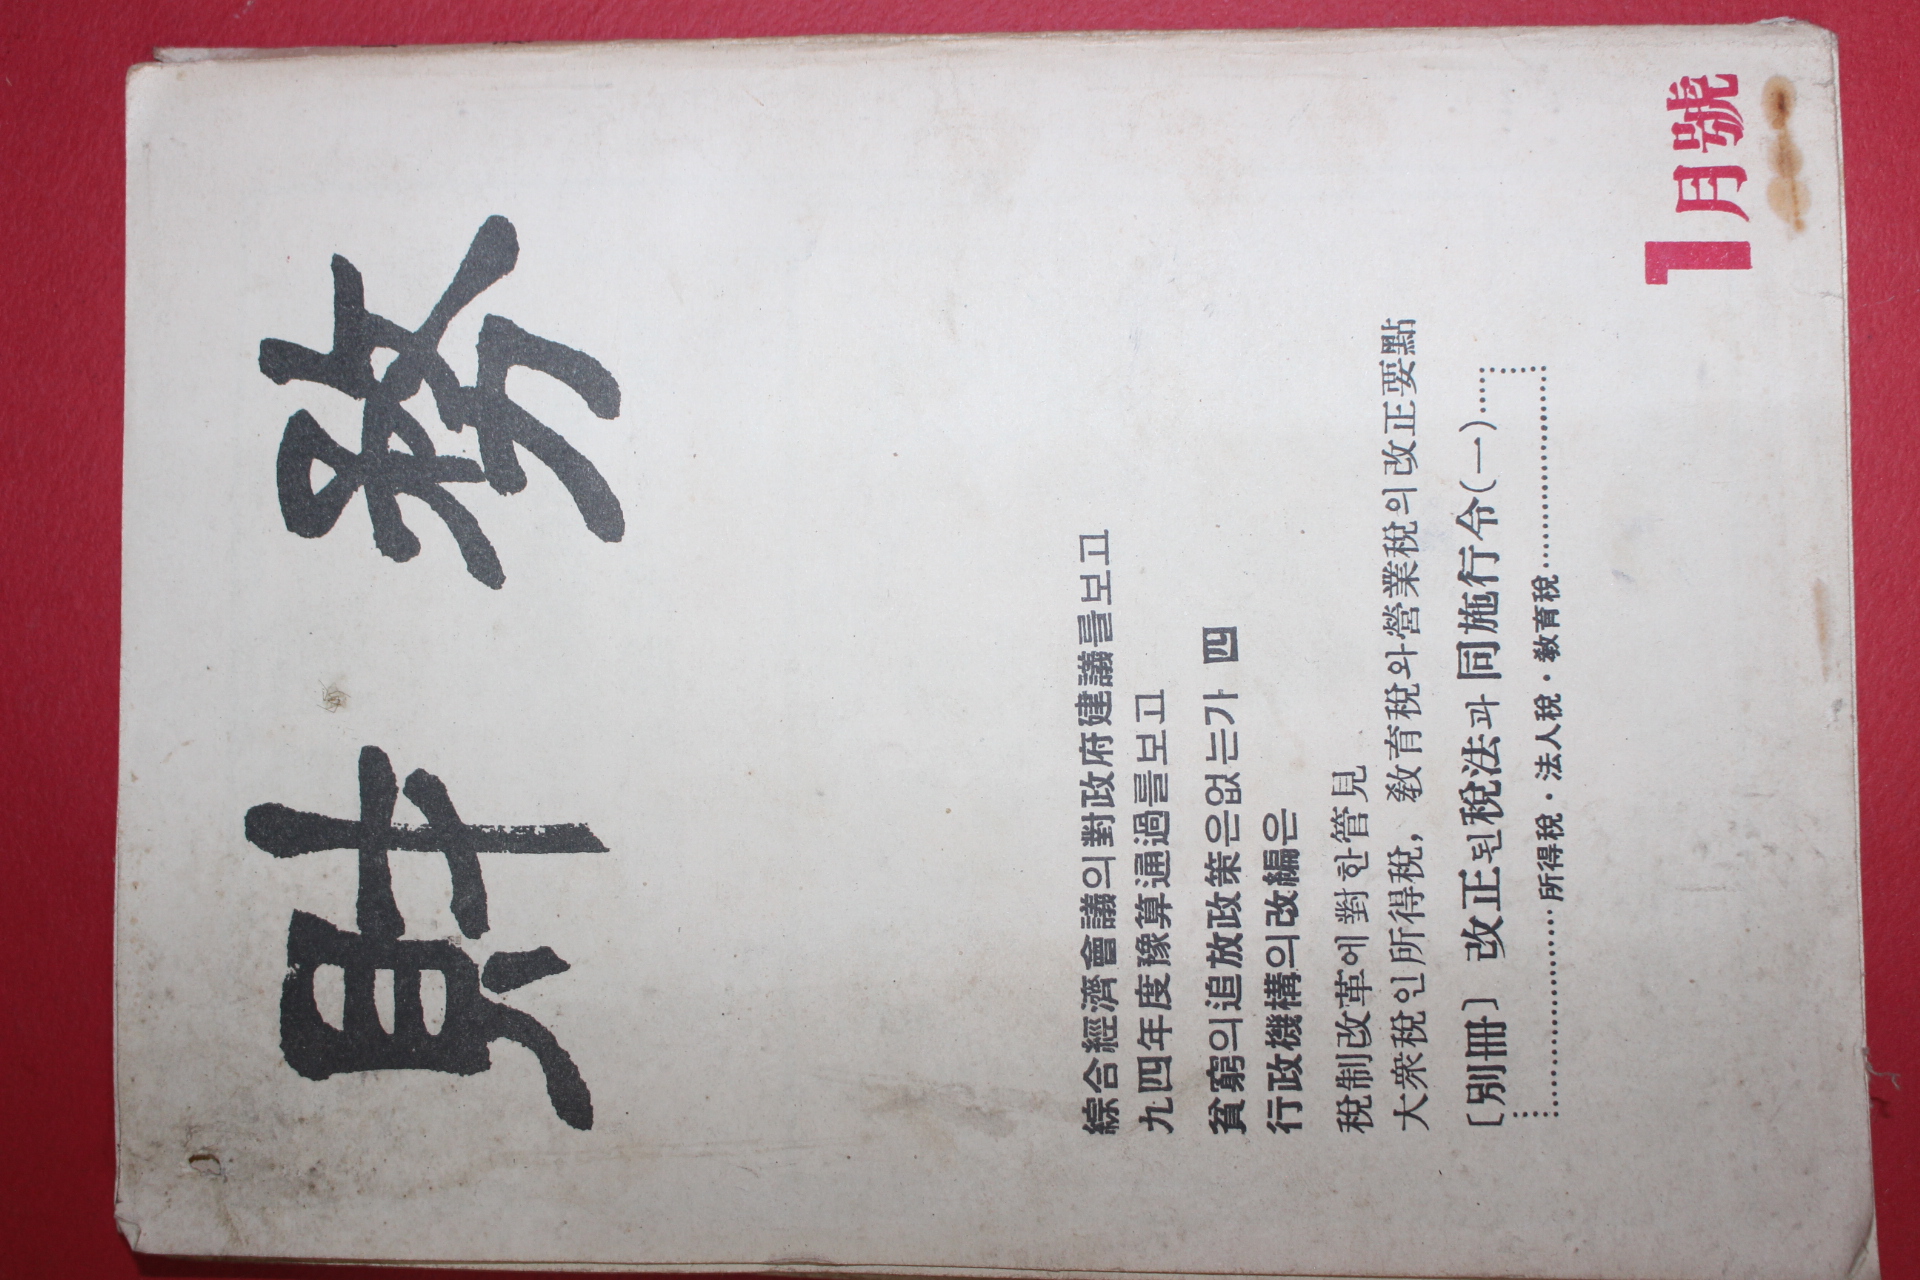 財務
綜合經濟會議의對政府建議를보고
九四年度豫算通過를보고
貧窮의追放政策은없는가 四
行政機構의改編은
稅制改革에對한管見
大衆稅인所得稅, 敎育稅와營業稅의改正要點
〔別冊〕 改正된稅法과同施行令(一)
所得稅・法人稅・敎育稅
1月號